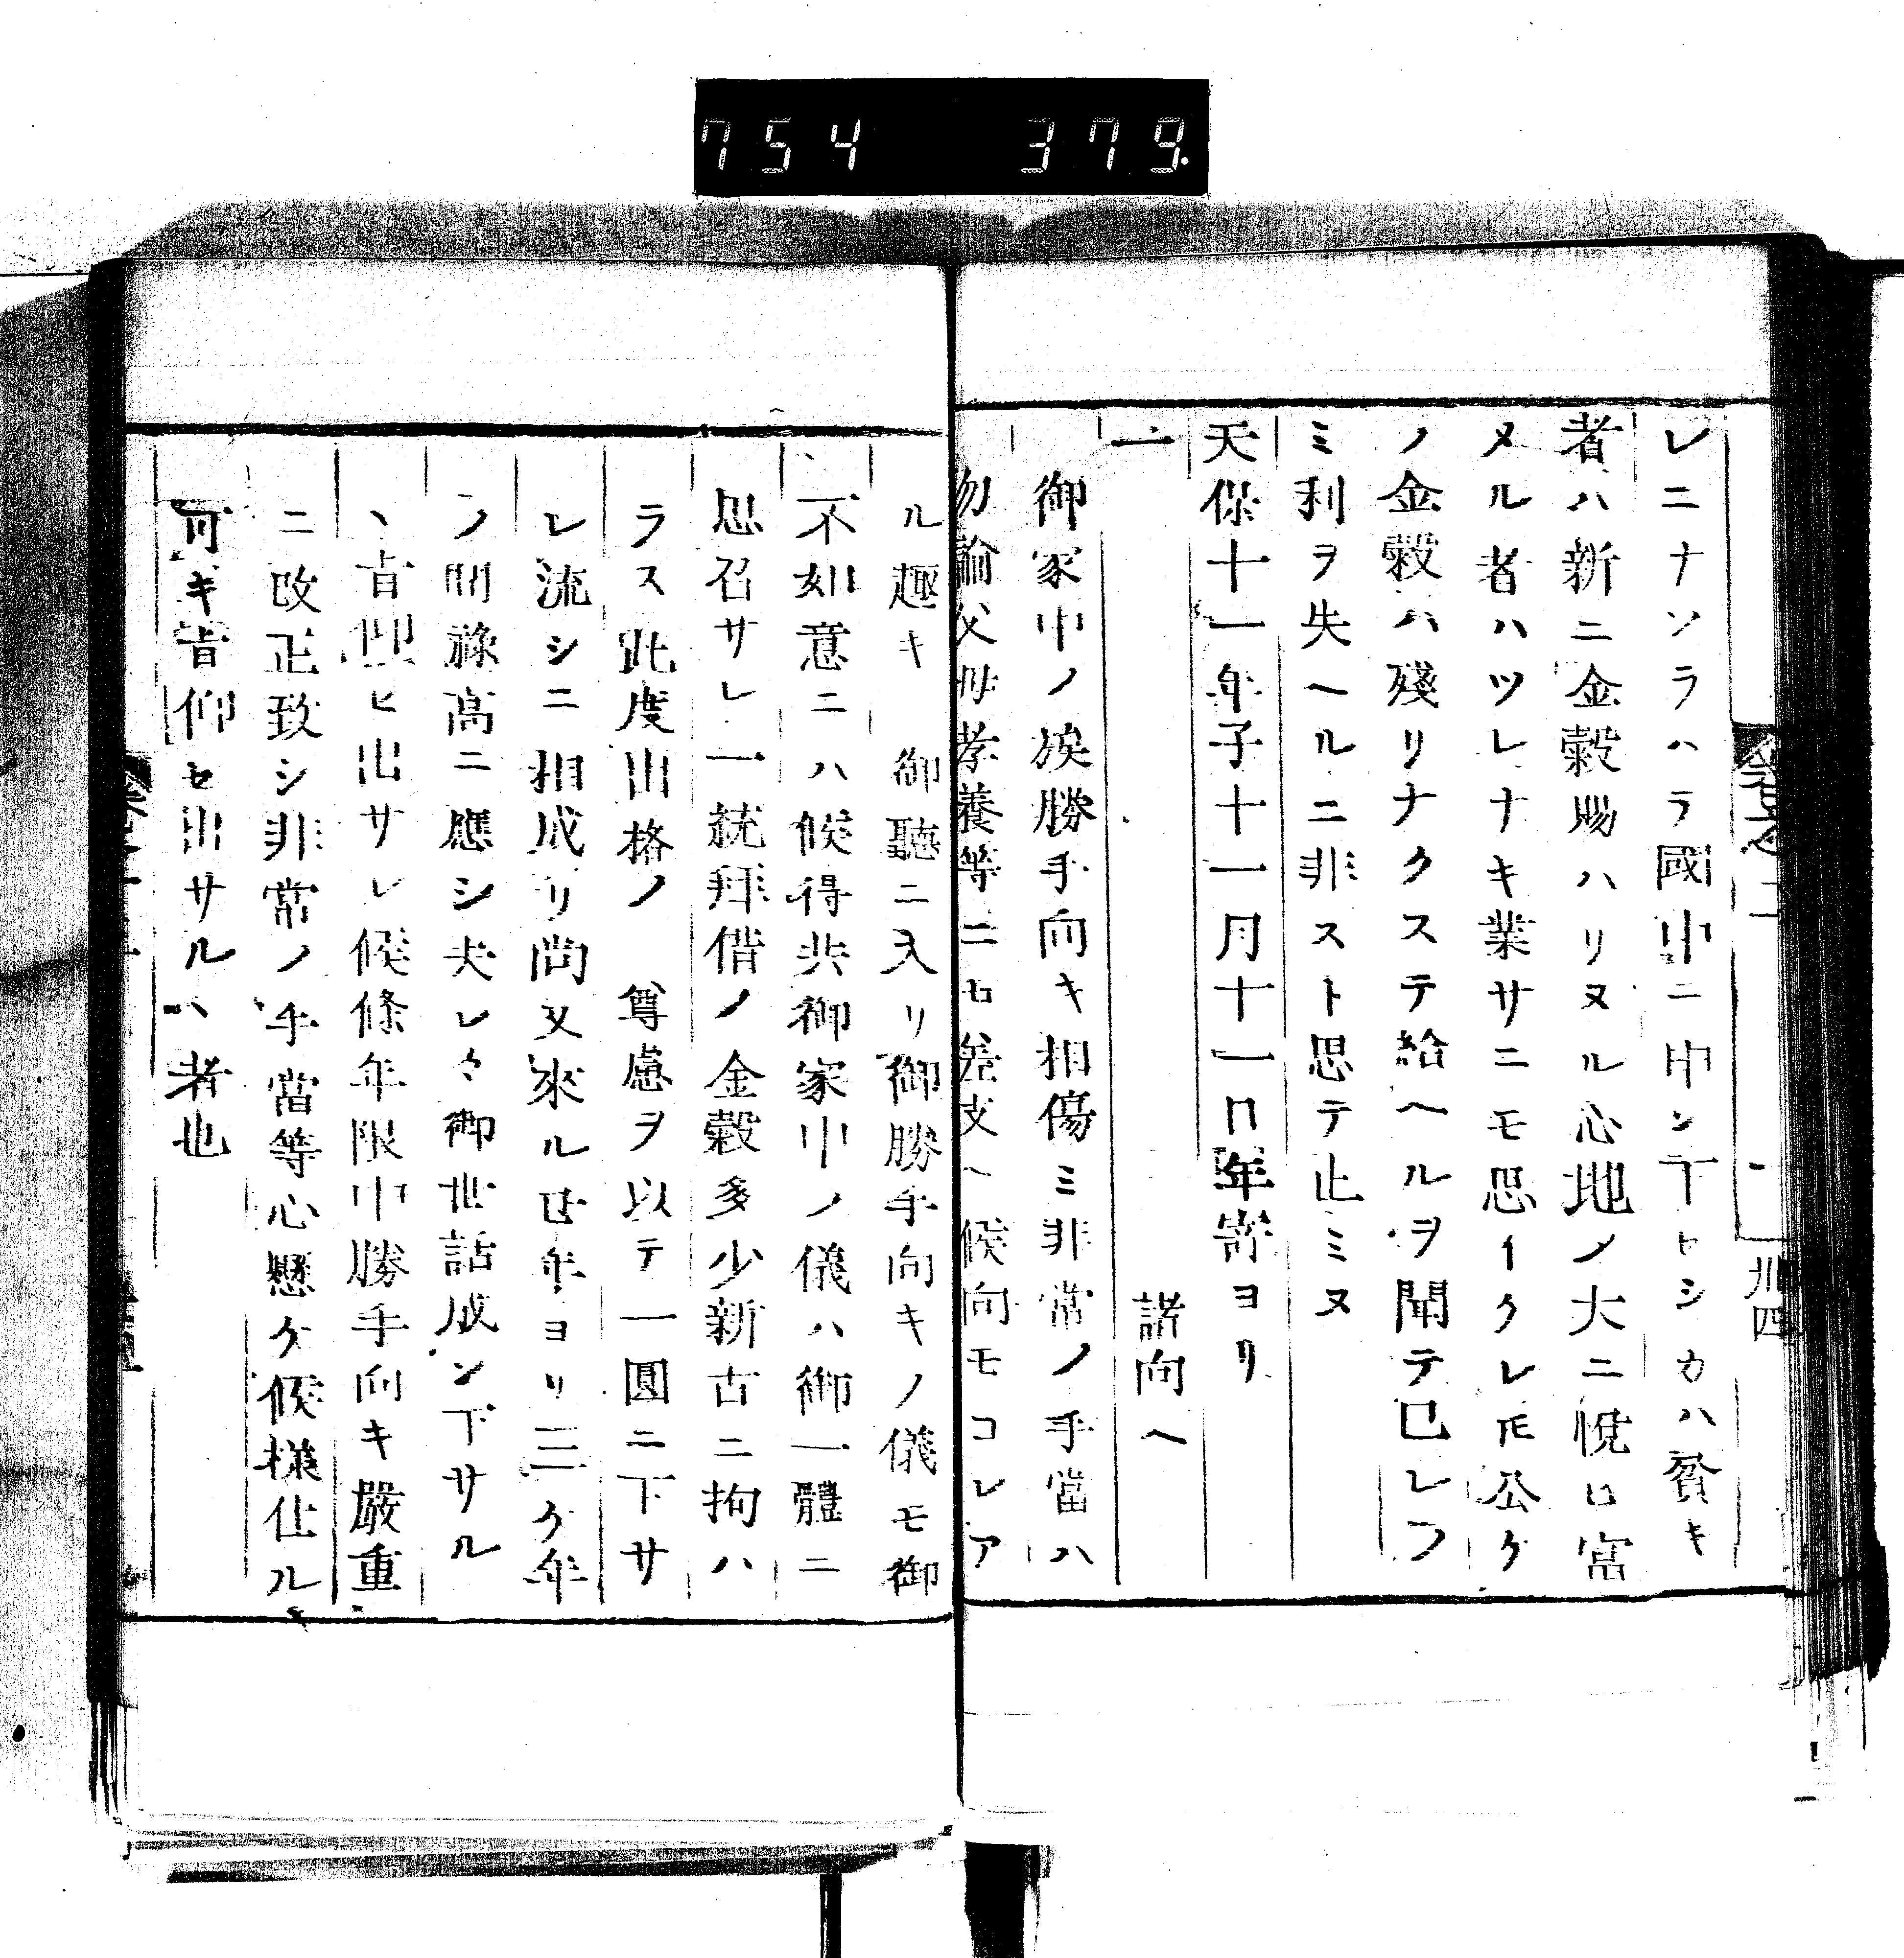 754 379.
卅四
レニナソラハラ國中ニ申ン下ヒシカハ貧キ
者ハ新ニ金穀賜ハリヌル心地ノ大ニ悅ヒ富
メル者ハツレナキ業サニモ思イクレ𪜈公ケ
ノ金穀ハ殘リナクステ給ヘルヲ聞テ已レフ
ミ利ヲ失ヘルニ非スト思テ止ミヌ
天保十一年子十一月十一日年寄ヨリ
一 諸向ヘ
御家中ノ族勝手向キ相傷ミ非常ノ手當ハ
勿論父母孝養等ニモ差支ヘ候向モコレア
ル趣キ 御聽ニ入リ御勝手向キノ儀モ御
不如意ニハ候得共御家中ノ儀ハ御一體ニ
思召サレ一統拜借ノ金穀多少新古ニ拘ハ
ラス此度出格ノ 尊慮ヲ以テ一圓ニ下サ
レ流シニ相成リ尚又來ル丑年ヨリ三ケ年
ノ間祿高ニ應シ夫レ々御世話成ン下サル
ヽ旨仰ヒ出サレ候條年限中勝手向キ嚴重
ニ改正致シ非常ノ手當等心懸ケ候樣仕ル
可キ旨仰セ出サルヽ者也